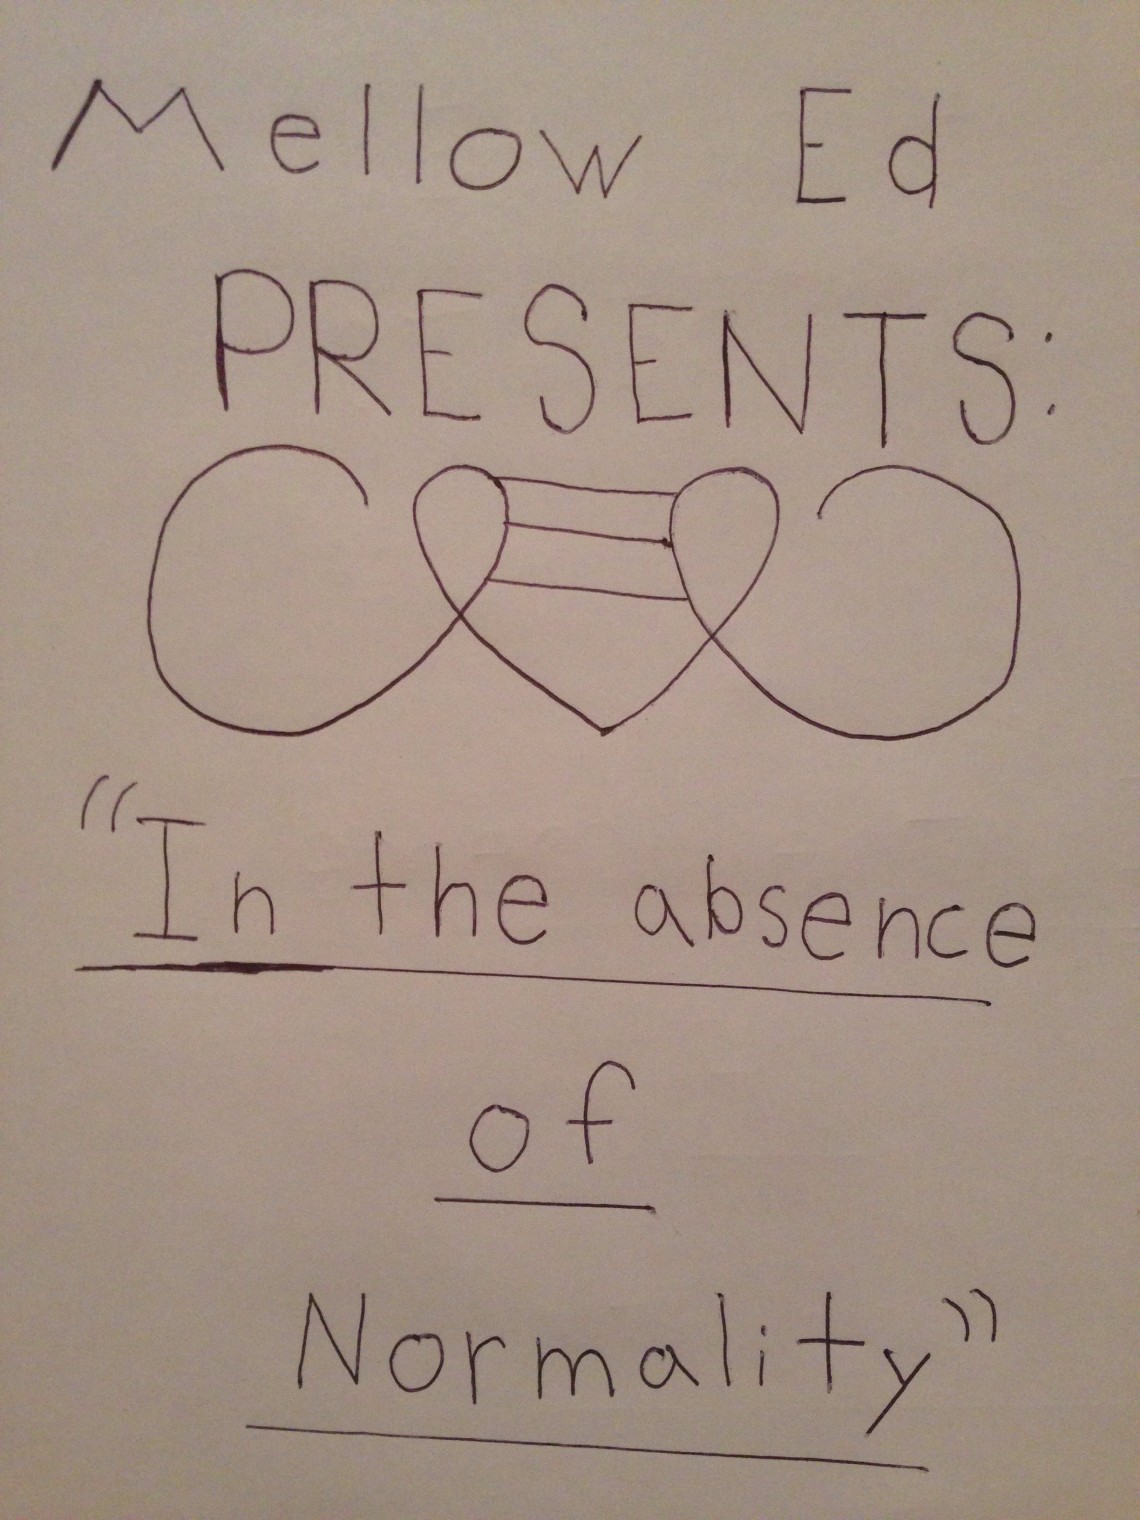 Mellow Ed
PRESENTS:
"In the absence
of
Normality"